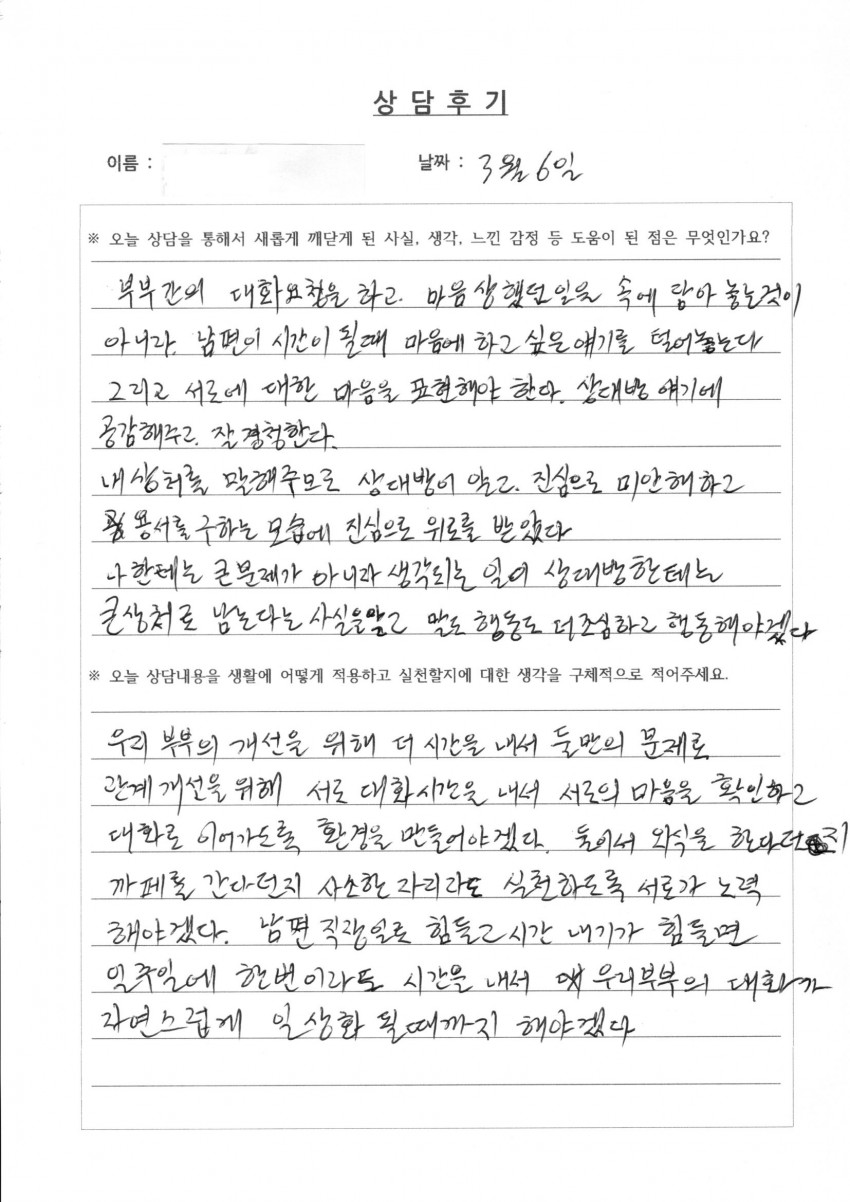 상담후기
이름 :
날짜 : 3월 6일
※ 오늘 상담을 통해서 새롭게 깨닫게 된 사실, 생각, 느낀 감정 등 도움이 된 점은 무엇인가요?
부부간의 대화요청을 하고. 마음상했던일을 속에 담아 놓는것이
아니라. 남편이 시간이 될때 마음에 하고 싶은얘기를 털어놓는다
그리고 서로에 대한 마음을 표현해야 한다. 상대방 얘기에
공감해주고. 잘경청한다.
내상처를 말해주므로 상대방이 알고. 진심으로 미안해하고
용서를구하는 모습에 진심으로 위로를 받았다
나한테는 큰문제가 아니라 생각되는 일이 상대방한테는
큰상처로 남는다는 사실을알고 말도 행동도 더조심하고 행동해야겠다
※ 오늘 상담내용을 생활에 어떻게 적용하고 실천할지에 대한 생각을 구체적으로 적어주세요.
우리 부부의 개선을 위해 더 시간을 내서 둘만의 문제로
관계개선을위해 서로 대화시간을 내서 서로의 마음을 확인하고
대화로 이어가도록 환경을 만들어야겠다. 둘이서 외식을 한다던지
까페를 간다던지 사소한 자리라도 실천하도록 서로가 노력
해야겠다. 남편직장일로 힘들고시간 내기가 힘들면
일주일에 한번이라도 시간을 내서 우리부부의 대화가
자연스럽게 일상화 될때까지 해야겠다